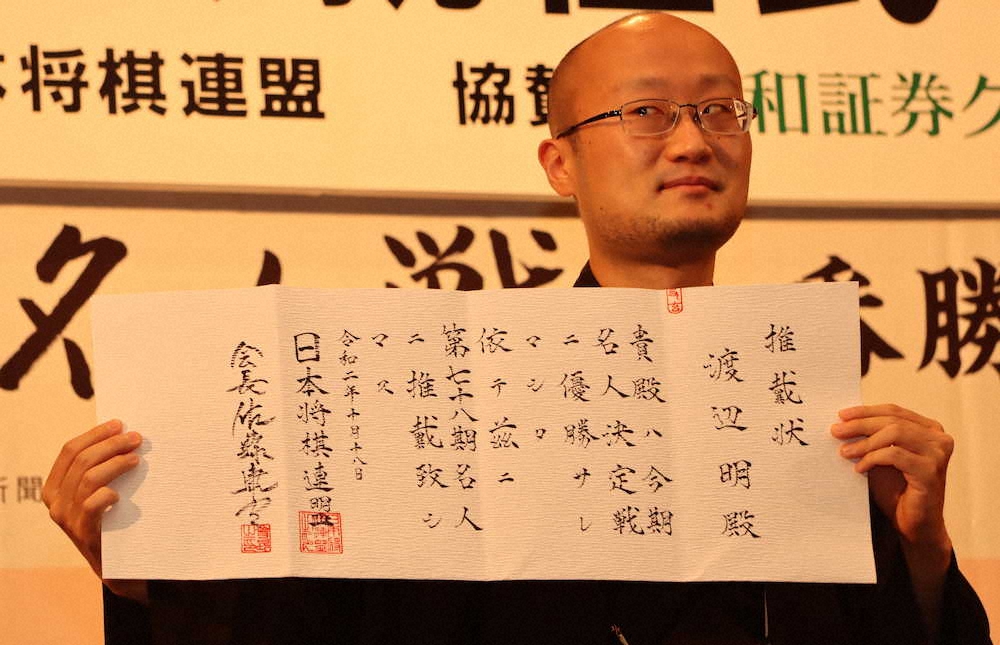 本将棋連盟
協賛
和証券
名人戦
勝
新聞
推戴状
渡辺明殿
貴殿ハ今期
名人決定戦
ニ優勝サレ
マシタ
依テ茲ニ
第七十八期名人
ニ推戴致シ
マス
令和二年十月十八日
日本将棋連盟
会長佐藤康光